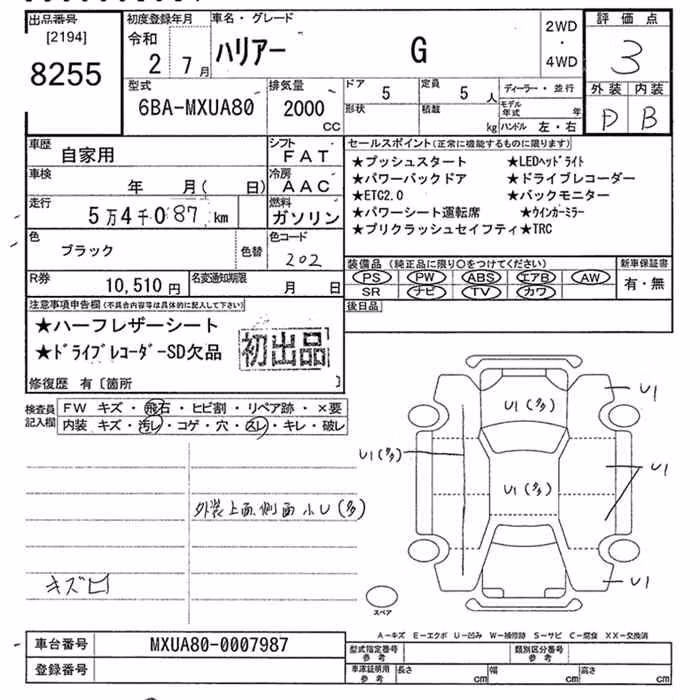 出品番号
[2194]
8255
初度登録年月
令和
2 7月
車名・グレード
ハリアー G
2WD
・
4WD
評価点
3
外装 内装
D B
型式
6BA-MXUA80
排気量
2000
CC
ドア 5
定員 5 人
形状
積載 kg
ディーラー・並行
モデル年式 年
ハンドル 左・右
車歴
自家用
シフト
FAT
車検
年 月( 日)
冷房
AAC
走行
5万4千087km
燃料
ガソリン
色
ブラック
色替
色コード
202
R券
10,510円
名変通知期限
月 日
セールスポイント(正常に機能するものに限ります)
★プッシュスタート ★LEDヘッドライト
★パワーバックドア ★ドライブレコーダー
★ETC2.0 ★バックモニター
★パワーシート運転席 ★ウインカーミラー
★プリクラッシュセイフティ★TRC
装備品(純正品に限り○をつけてください)
PS PW ABS エアB AW
SR ナビ TV カワ
新車保証書
有・無
後日品
注意事項申告欄(不具合内容等は具体的に記入して下さい)
★ハーフレザーシート
★ドライブレコーダーSD欠品
初出品
修復歴 有〔箇所 〕
検査員
記入欄
FW キズ・飛石・ヒビ割・リペア跡・×要
内装 キズ・汚レ・コゲ・穴・スレ・キレ・破レ
外装上面、側面小U(多)
キズビ
U1
U1(多)
U1(多)
U1
U1(多)
U1
スペア
A-キズ E-エクボ U-凹み W-補修跡 S-サビ C-腐食 XX-交換済
車台番号
MXUA80-0007987
登録番号
型式指定番号
参考
類別区分番号
参考
車庫証明用
参考
長さ cm
幅 cm
高さ cm